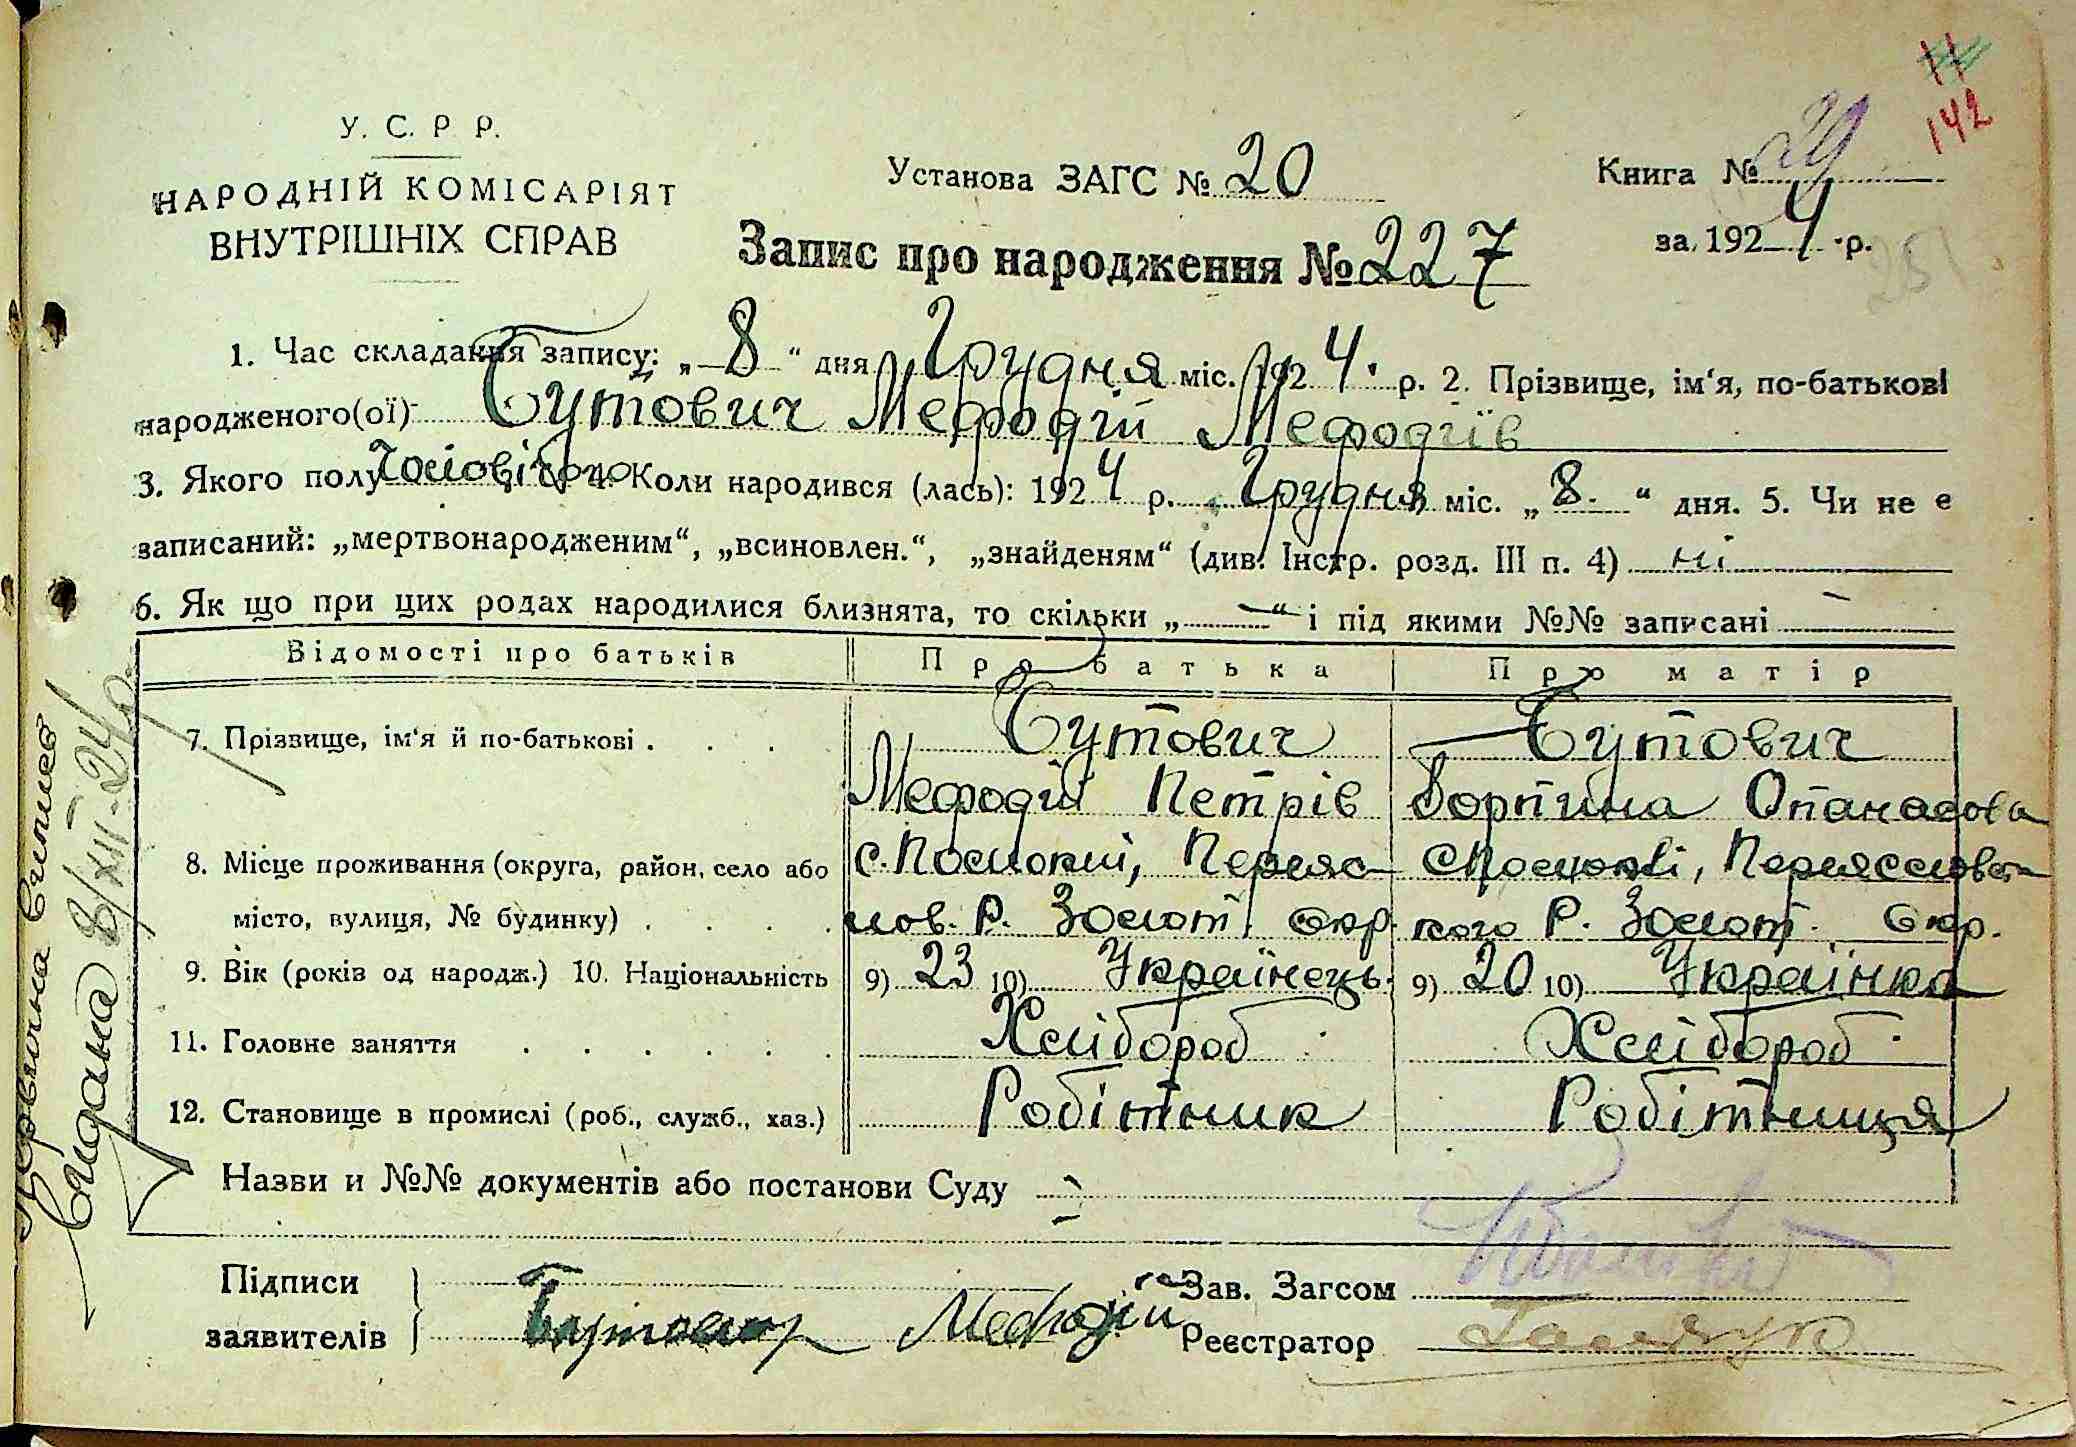 142
У. С. Р. Р.
НАРОДНІЙ КОМІСАРІЯТ
ВНУТРІШНІХ СПРАВ
Установа ЗАГС № 20
Книга № 29
за 1924 р.
Запис про народження № 227
1. Час складання запису: „8“ дня Грудня міс. 1924. р. 2. Прізвище, ім‘я, по-батькові
народженого(ої) Бутович Мефодій Мефодіїв
3. Якого полу Чоловічого 4. Коли народився (лась): 1924 р. Грудня міс. „8.“ дня. 5. Чи не є
записаний: „мертвонародженим“, „всиновлен.“, „знайденям“ (див. Інстр. розд. III п. 4) ні
6. Як що при цих родах народилися близнята, то скільки „—“ і під якими №№ записані —
Відомості про батьків Про батька Про матір
7. Прізвище, ім‘я й по-батькові . . . Бутович Бутович
Мефодій Петрів Опанасова
8. Місце проживання (округа, район, село або
місто, вулиця, № будинку) . . . . лов. Р. Золот. Окр. кого Р. Золот. Окр.
9. Вік (років од народж.) 10. Національність 9) 23 10) Українець. 9) 20 10) Українка
11. Головне заняття . . . . . . Хлібороб Хлібороб
12. Становище в промислі (роб., служб., хаз.) Робітник Робітниця
Назви и №№ документів або постанови Суду —
Підписи
заявителів
Бутович Мефодій
Зав. Загсом
Реєстратор
Первична виписв
видана 8/XII-24 р.